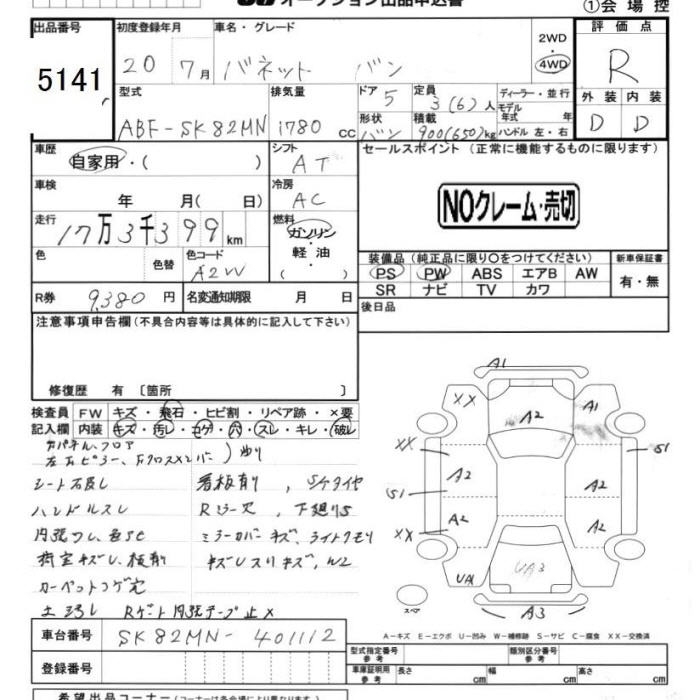 オークション出品申込書
①会場控
出品番号
5141
初度登録年月
20 7月
車名・グレード
バネット バン
2WD
4WD
評価点
R
型式
ABF-SK82MN
排気量
1780 CC
ドア
5
定員
3(6)人
形状
バン
積載
900(650)kg
ディーラー・並行
モデル年式 年
ハンドル 左・右
外装 内装
D D
車歴
自家用・( )
シフト
AT
セールスポイント(正常に機能するものに限ります)
車検
年 月( 日)
冷房
AC
NOクレーム・売切
走行
17万3千399km
燃料
ガソリン・軽油
( )
色
色替
色コード
A2W
装備品(純正品に限り○をつけてください)
PS PW ABS エアB AW
SR ナビ TV カワ
新車保証書
有・無
R券 9,380円
名変通知期限 月 日
後日品
注意事項申告欄(不具合内容等は具体的に記入して下さい)
修復歴 有〔箇所 〕
検査員記入欄
FW キズ・飛石・ヒビ割・リペア跡・×要
内装 キズ・汚レ・コゲ・穴・スレ・キレ・破レ
シート
看板有り、
ハンドルスレ
ミラーカバーキズ、ライトクモリ
カーペットコゲ穴
A1
XX
A2
A1
XX
A2
A2
S1
S1
A2
A2
XX
UA1
UA3
A3
スペア
A-キズ E-エクボ U-凹み W-補修跡 S-サビ C-腐食 XX-交換済
車台番号
SK82MN-401112
登録番号
型式指定番号 参考
類別区分番号 参考
車庫証明用 参考
長さ cm 幅 cm 高さ cm
希望出品コーナー(コーナーは各会場により異なります)